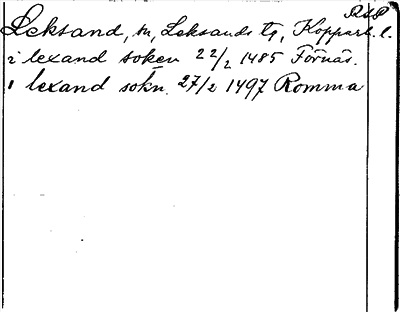 RAP
Leksand, sn, Leksands tg, Kopparb. l.
i lexand soken 22/2 1485 Förnäs.
i lexand sokn. 27/2 1497 Romma